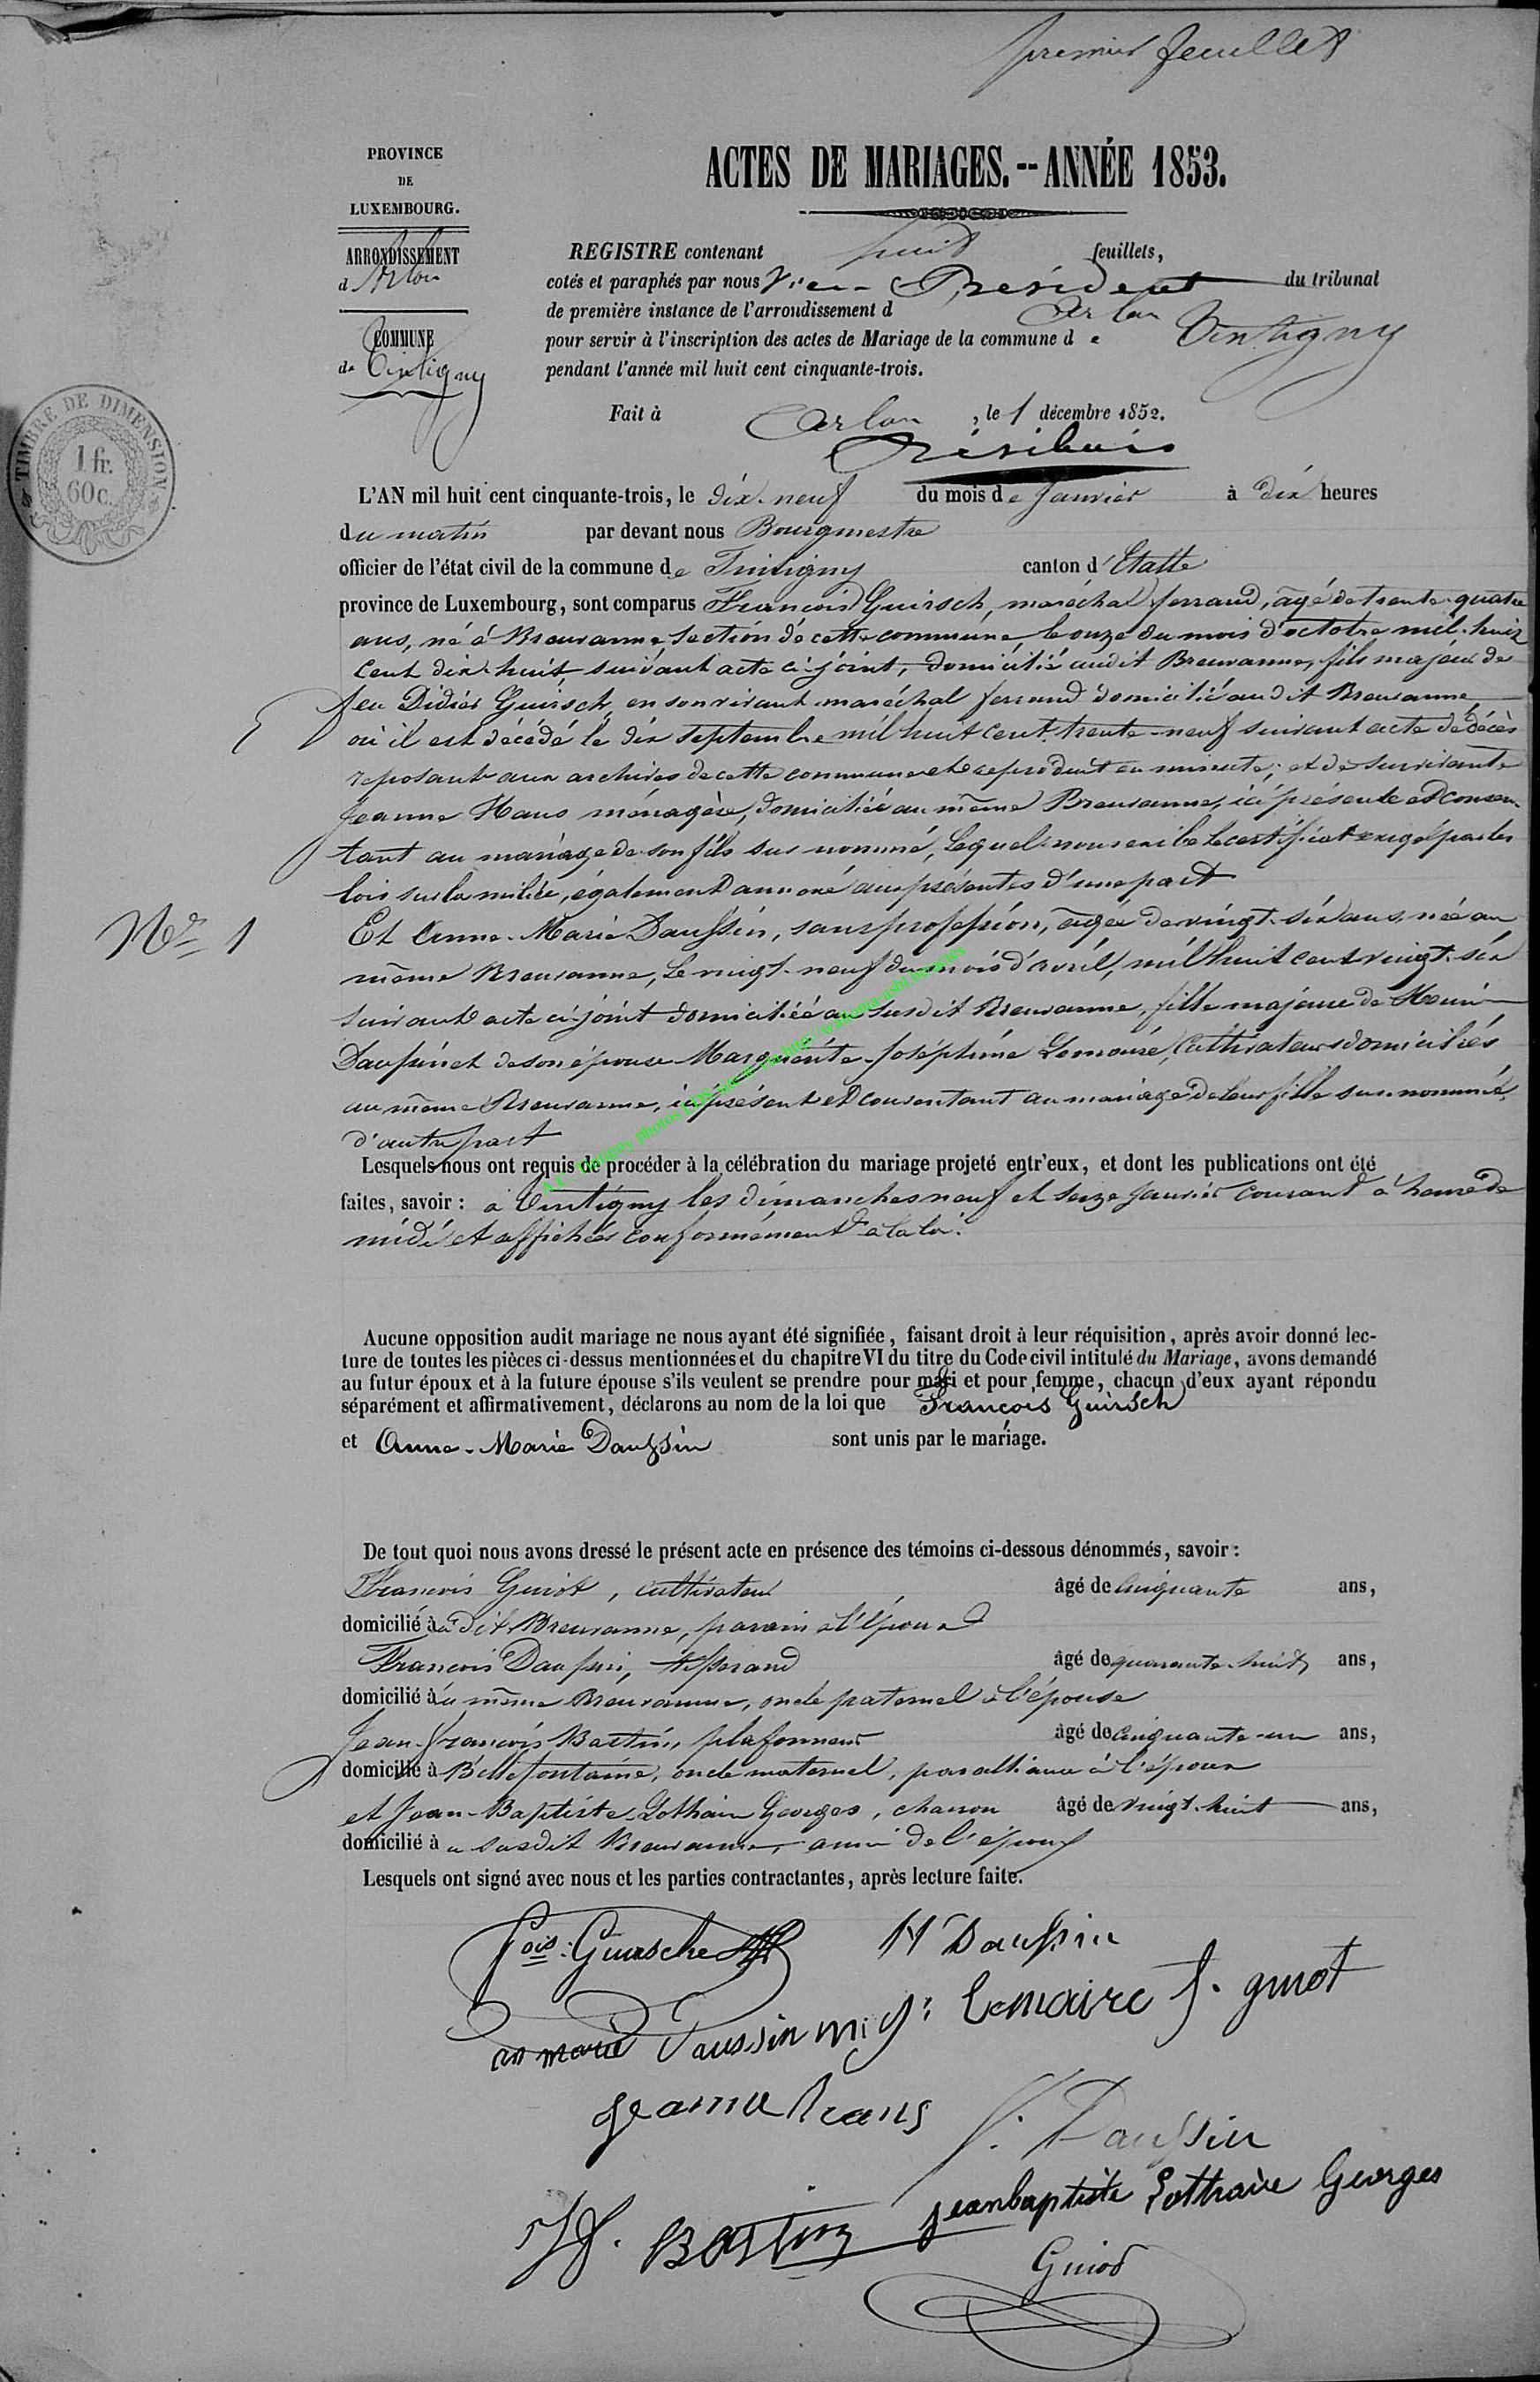 premier feuillet
PROVINCE
DE
LUXEMBOURG.
ARRONDISSEMENT
d'Arlon
COMMUNE
de Tintigny
TIMBRE DE DIMENSION
1 fr.
60 c.
ACTES DE MARIAGES.--ANNÉE 1853.
REGISTRE contenant huit feuillets,
cotés et paraphés par nous Vice-Président du tribunal
de première instance de l'arrondissement d Arlon
pour servir à l'inscription des actes de Mariage de la commune de Tintigny
pendant l'année mil huit cent cinquante-trois.
Fait à Arlon, le 1 décembre 1852.
L'AN mil huit cent cinquante-trois, le dix-neuf du mois de Janvier à dix heures
du matin par devant nous Bourgmestre
officier de l'état civil de la commune de Tintigny canton d'Etalle
province de Luxembourg, sont comparus François Guirsch, maréchal ferrand, âgé de trente-quatre
ans, né à Breuvanne, section de cette commune le onze du mois d'octobre mil-huit
cent dix-huit suivant acte ci-joint, domicilié audit Breuvanne, fils majeur de
feu Didier Guirsch, en son vivant maréchal ferrand domicilié au dit Breuvanne
où il est décédé le dix septembre mil huit cent trente-neuf suivant acte de décès
reposant aux archives de cette commune et reproduit en minute; et de survivante
Jeanne Hans ménagère, domiciliée au même Breuvanne, ici présente et consen-
tant au mariage de son fils sus nommé, Lequel nous exibe le certificat exigé par les
lois sur la milice, également annexé aux présentes d'une part
N° 1
Et Anne-Marie Daussin, sans profession, âgée de vingt-six ans, née au
même Breuvanne, le vingt-neuf du mois d'avril, mil huit cent vingt-six
suivant acte ci-joint domiciliée au susdit Breuvanne, fille majeure de Henri
Daussin et de son épouse Marguerite-Joséphine Lemaire, Cultivateurs domiciliés
au même Breuvanne, ici présent et consentant au mariage de leur fille sus-nommée,
d'autre part
Lesquels nous ont requis de procéder à la célébration du mariage projeté entr'eux, et dont les publications ont été
faites, savoir : à Tintigny les dimanches neuf et seize Janvier courant à heure de
midi et affichées conformément à la loi.
Aucune opposition audit mariage ne nous ayant été signifiée, faisant droit à leur réquisition, après avoir donné lec-
ture de toutes les pièces ci-dessus mentionnées et du chapitre VI du titre du Code civil intitulé du Mariage, avons demandé
au futur époux et à la future épouse s'ils veulent se prendre pour mari et pour femme, chacun d'eux ayant répondu
séparément et affirmativement, déclarons au nom de la loi que François Guirsch
et Anne-Marie Daussin sont unis par le mariage.
De tout quoi nous avons dressé le présent acte en présence des témoins ci-dessous dénommés, savoir :
François Guiot, cultivateur âgé de cinquante ans,
domicilié à dit Breuvanne, parain à l'époux
François Daussin, tisserand âgé de quarante-huit ans,
domicilié au même Breuvanne, oncle paternel à l'épouse
Jean-François Bastin, plafonneur âgé de cinquante-un ans,
domicilié à Bellefontaine, oncle maternel, par alliance à l'époux
et Jean-Baptiste Lothaire Georges, charron âgé de vingt-huit ans,
domicilié au susdit Breuvanne, ami de l'époux
Lesquels ont signé avec nous et les parties contractantes, après lecture faite.
Fois: Guirsche
H Daussin
an marie Daussin
m.j. Lemaire
f. guiot
Jeanne hans
f. Daussin
JF. Bastin
jeanbaptiste Lottraire Georges
Guiot